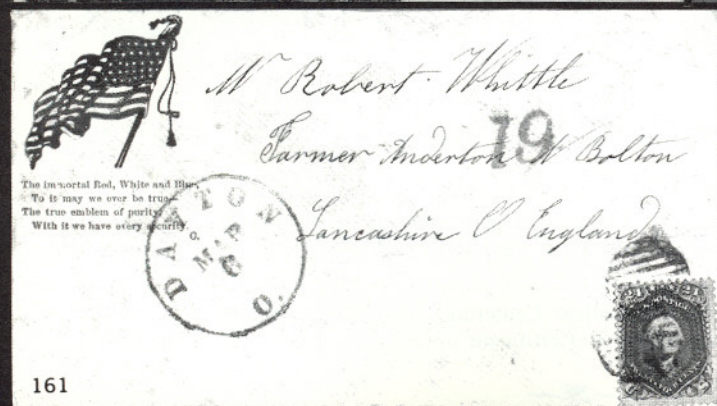 Mr Robert Whittle
19
Farmer Anderton N Bolton
Lancashire O England
The immortal Red, White and Blue,
To it may we ever be true—
The true emblem of purity,
With it we have every security.
DAYTON O.
MAR
6
161